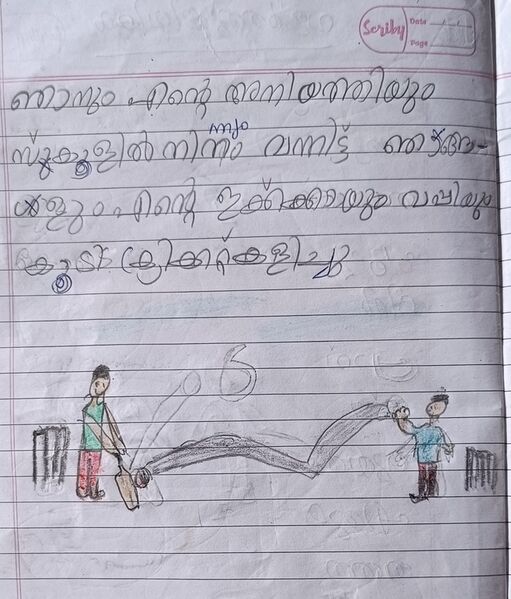 Scriby
Date
Page
ഞാനും എന്റെ അനിയത്തിയും
ന്നും
സ്കൂളിൽ നിന്നും വന്നിട്ട് ഞങ്ങ-
ളും എന്റെ ഇക്കാക്കയും വാപ്പിയും
കൂടി ക്രിക്കറ്റ് കളിച്ചു
6